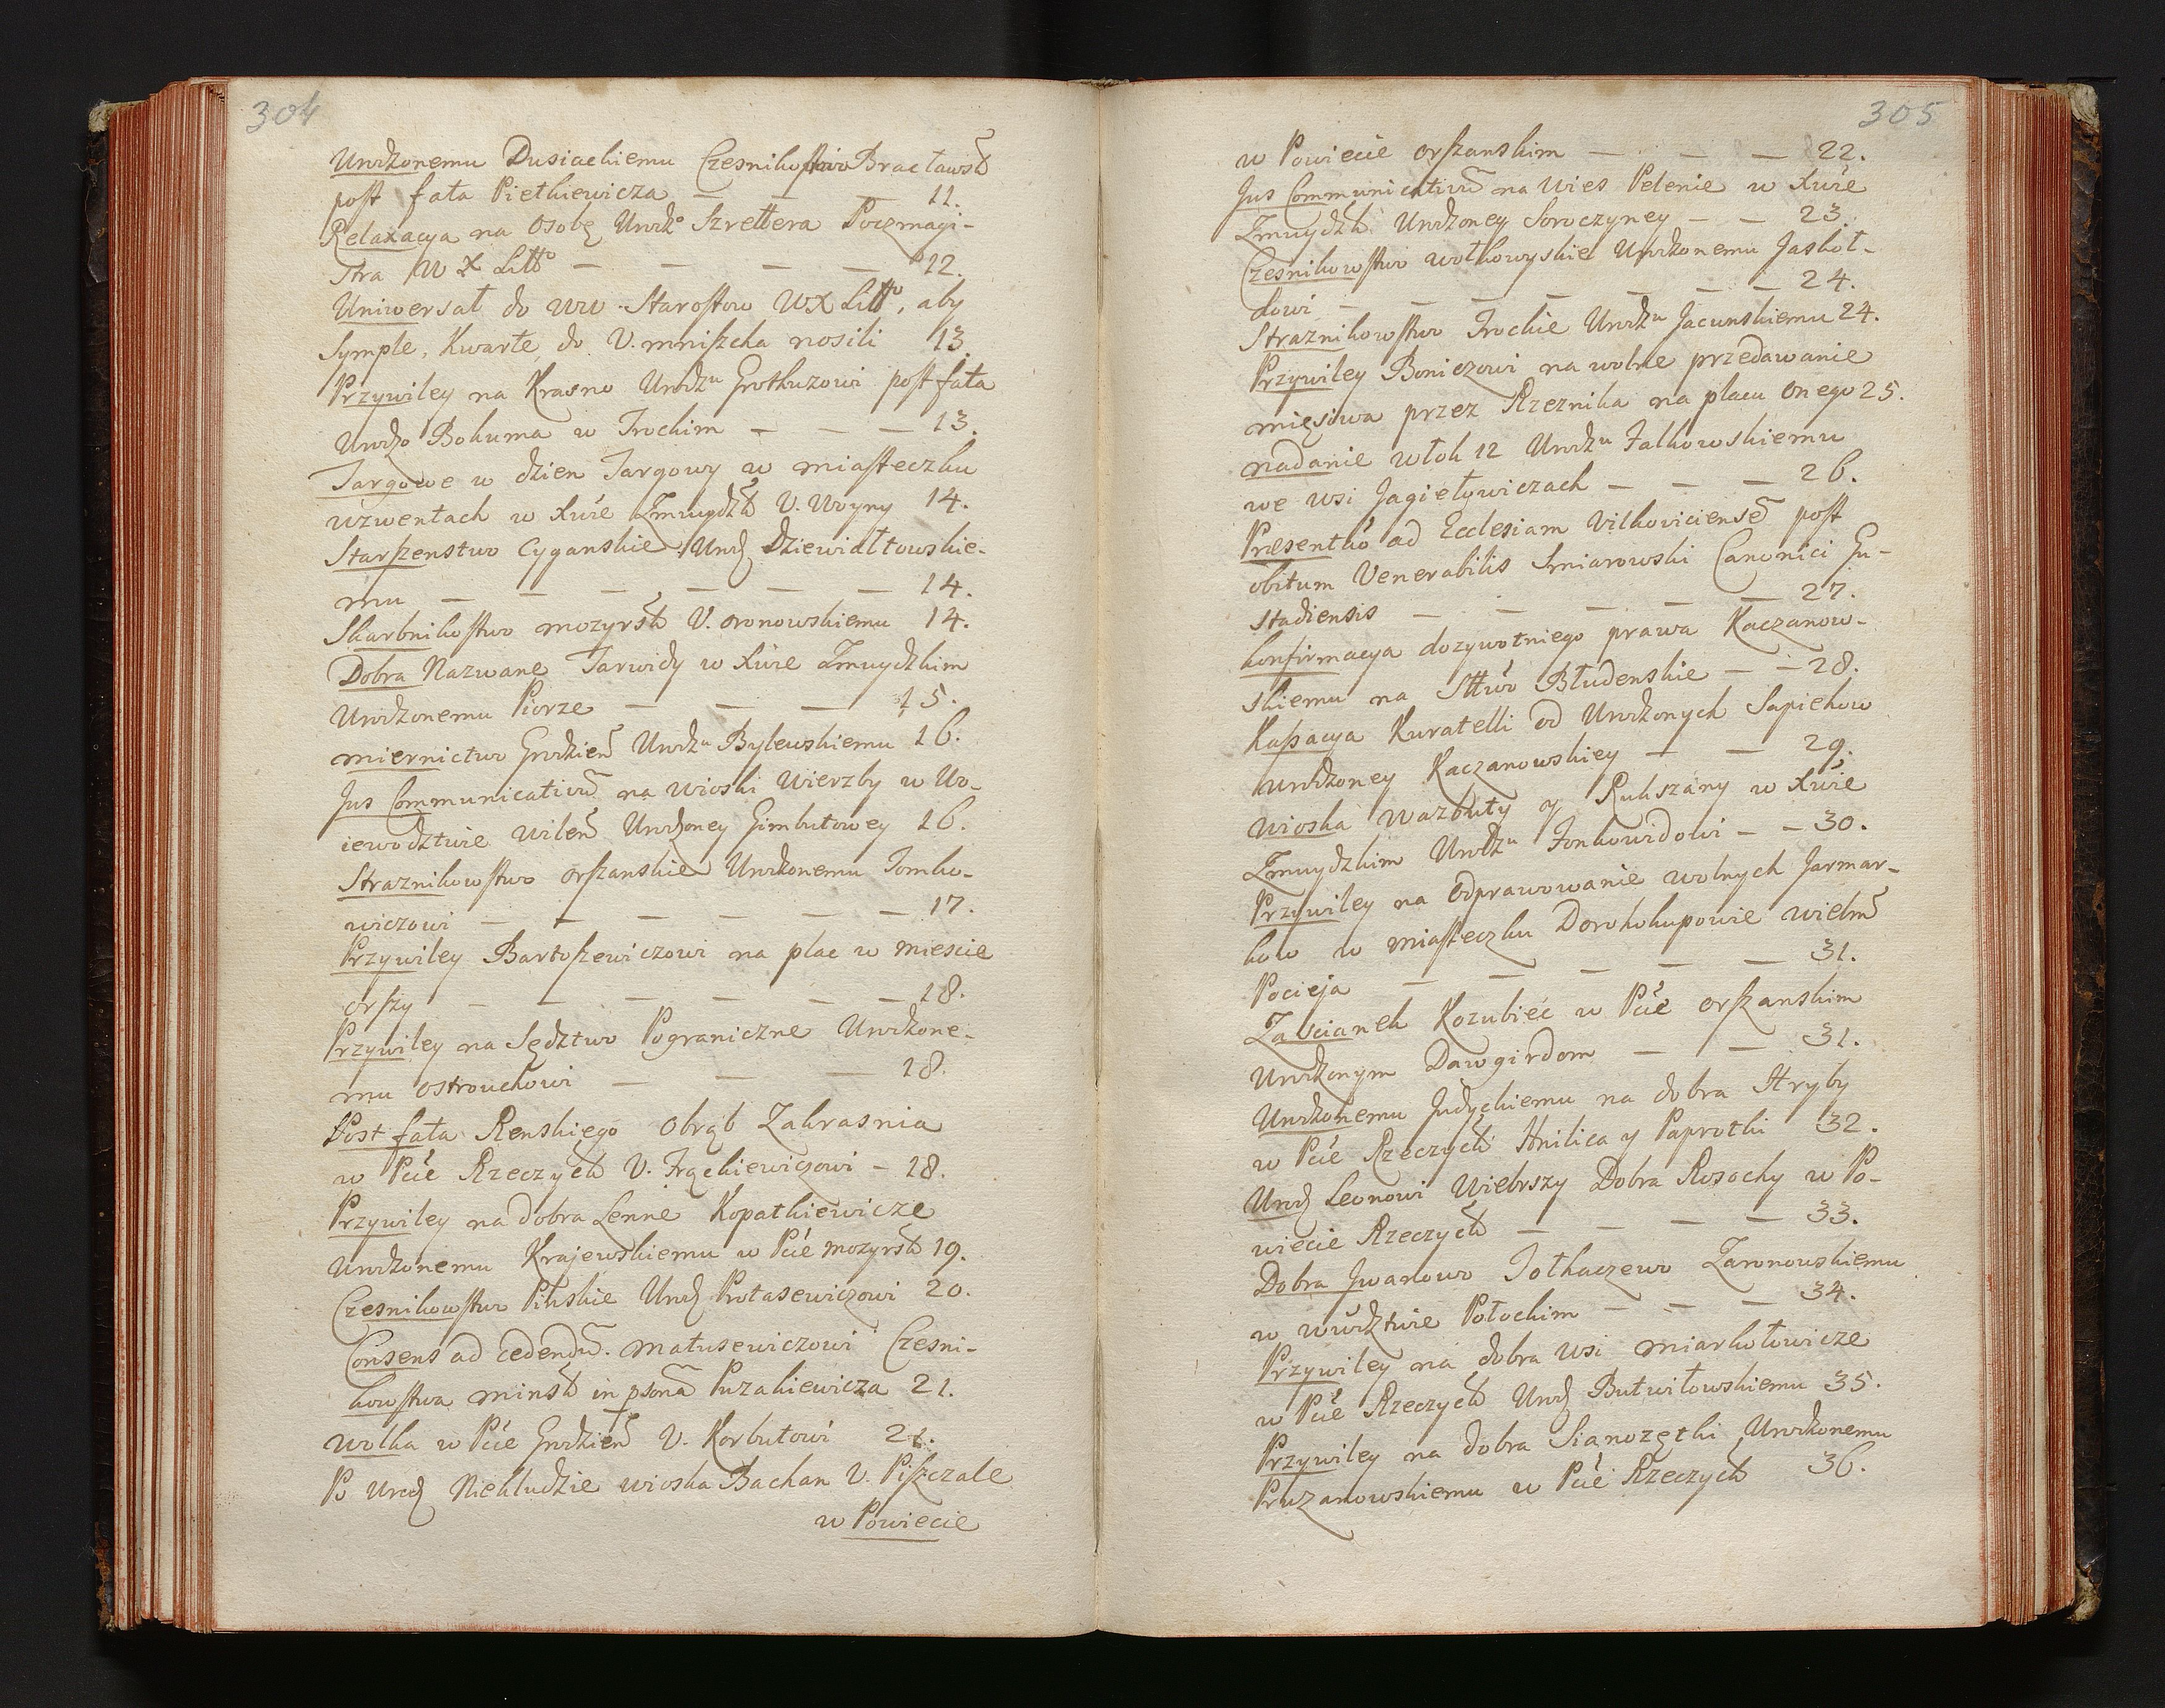 304
Urodzonemu Dusiackiemu Czesnikostwo Bracławsk̃
post fata Pietkiewicza — — — 11.
Relaxacya na Osobę Urodz° Szrettera Poczmagi-
stra W X Litt° — — — — 12.
Uniwersał do WW Starostow WX Litt°, aby
Symple, Kwarte do V. Mniszcha nosili 13.
Przywiley na Krasno Urodzu Grothuzowi post fata
Urodzo Bohuma w Trockim — — — 13.
Targowe w dzien Targowy w miasteczku
Uzwentach w Xtwie Zmuydzk̃ V. Woyny 14.
Starszenstwo Cyganskie Urodz Dziewiałtowskie-
mu — — — — — — 14.
Skarbnikostwo mozyrsk̃ V. Oronowskiemu 14.
Dobra Nazwane Tarwidy w Xtwie Zmuydzkim
Urodzonemu Piorze — — — 15.
miernictwo Grodzień Urodzu Bylewskiemu 16.
Jus Communicativũ na wioski Wierzby w Wo-
iewodztwie Wileñ Urodzoney Gimbutowey 16.
Straznikowstwo Orszanskie Urodzonemu Tomko-
wiczowi — — — — — — 17.
Przywiley Bartoszewiczowi na plac w miescie
Orszy — — — — — — 18.
Przywiley na Sędztwo Pograniczne Urodzone-
mu Ostrouchowi — — — 18.
Post fata Renskiego Obrąb Zakrasnia
w Pcie Rzeczyck̃ V. Frąckiewiczowi — 18.
Przywiley na dobra Lenne Kopatkiewicze
Urodzonemu Krajewskiemu w Pcie mozyrsk̃ 19.
Czesnikowstwo Pinskie Urodz Protasewiczowi 20.
Consens ad cedendũ. Matusewiczowi Czesni-
kowstwa minsk̃ in psonã Puzakiewicza 21.
Wolka w Pcie Grodzieñ V. Korbutowi 21.
Po Urodz Niekludzie wioska Bachan V. Piszczale
w Powiecie
305
w Powiecie Orszanskim — — — 22.
Jus Communicativũ na Wies Pelenie w Xtwie
Zmuydzk̃ Urodzoney Soroczyney — — 23.
Czesnikowstwo wołkowyskie Urodzonemu Jaskoł-
dowi — — — — — — — 24.
Straznikowstwo Trockie Urodzu Jacunskiemu 24.
Przywiley Boniczowi na wolne przedawanie
mięsiwa przez Rzeznika na placu Onego 25.
nadanie włok 12 Urodzu Falkowskiemu
we wsi Jagieływiczach — — — 26.
Præsentňo ad Ecclesiam Vilkoviciensẽ post
obitum Venerabilis Smiarowski Canonici Gu-
stadiensis — — — — — 27.
Konfirmacya dozywotniego prawa Kaczanow-
skiemu na Sttwo Błudenskie — — 28.
Kassacya Kuratelli od Urodzonych Sapiehow
Urodzoney Kaczanowskiey — — 29.
Wioska Wazbuty y Rukszany w Xtwie
Zmuydzkim Urodzu Jonkowidowi — — 30.
Przywiley na Odprawowanie wolnych Jarmar-
kow w miasteczku Dorohokupowie Wielmõ
Pocieja — — — — — 31.
Zascianek Kozubiec w Pcie Orszanskim
Urodzonym Dawgirdom — — 31.
Urodzonemu Judyckiemu na dobra Hryby
w Pcie Rzeczyck̃ Hnilica y Paprotki 32.
Urodz Leonowi Wiebrszy Dobra Rosochy w Po-
wiecie Rzeczyck̃ — — — — 33.
Dobra Jwanowo Tołkaczewo Zaronowskiemu
w Wwdztwie Połockim — — — 34.
Przywiley na dobra wsi Miarkołowicze
w Pcie Rzeczyck̃ Urodz Butwiłowskiemu 35.
Przywiley na dobra Sianozętki Urodzonemu
Pruzanowskiemu w Pcie Rzeczyck̃ 36.